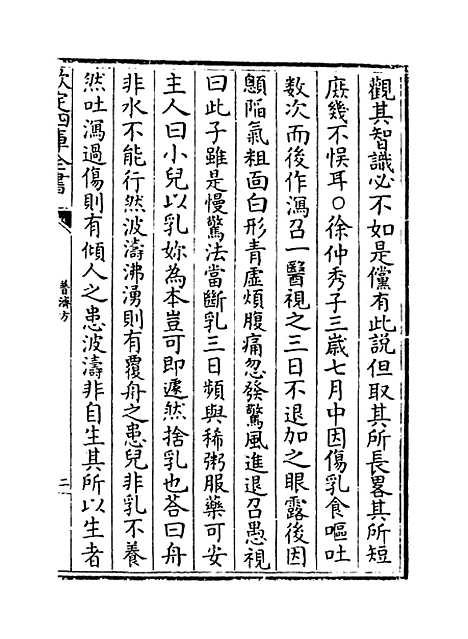 觀其智識必不如是儻有此說但取其所長畧其所短
庶幾不悞耳○徐仲秀子三歲七月中因傷乳食嘔吐
數次而後作瀉召一醫視之三日不退加之眼露後因
顖陷氣粗面白形青虛煩腹痛忽發驚風進退召愚視
曰此子雖是慢驚法當斷乳三日頻與稀粥服藥可安
主人曰小兒以乳妳為本豈可即遽然捨乳也荅曰舟
非水不能行然波濤沸湧則有覆舟之患兒非乳不養
然吐瀉過傷則有傾人之患波濤非自生其所以生者
欽定四庫全書
普濟方
二